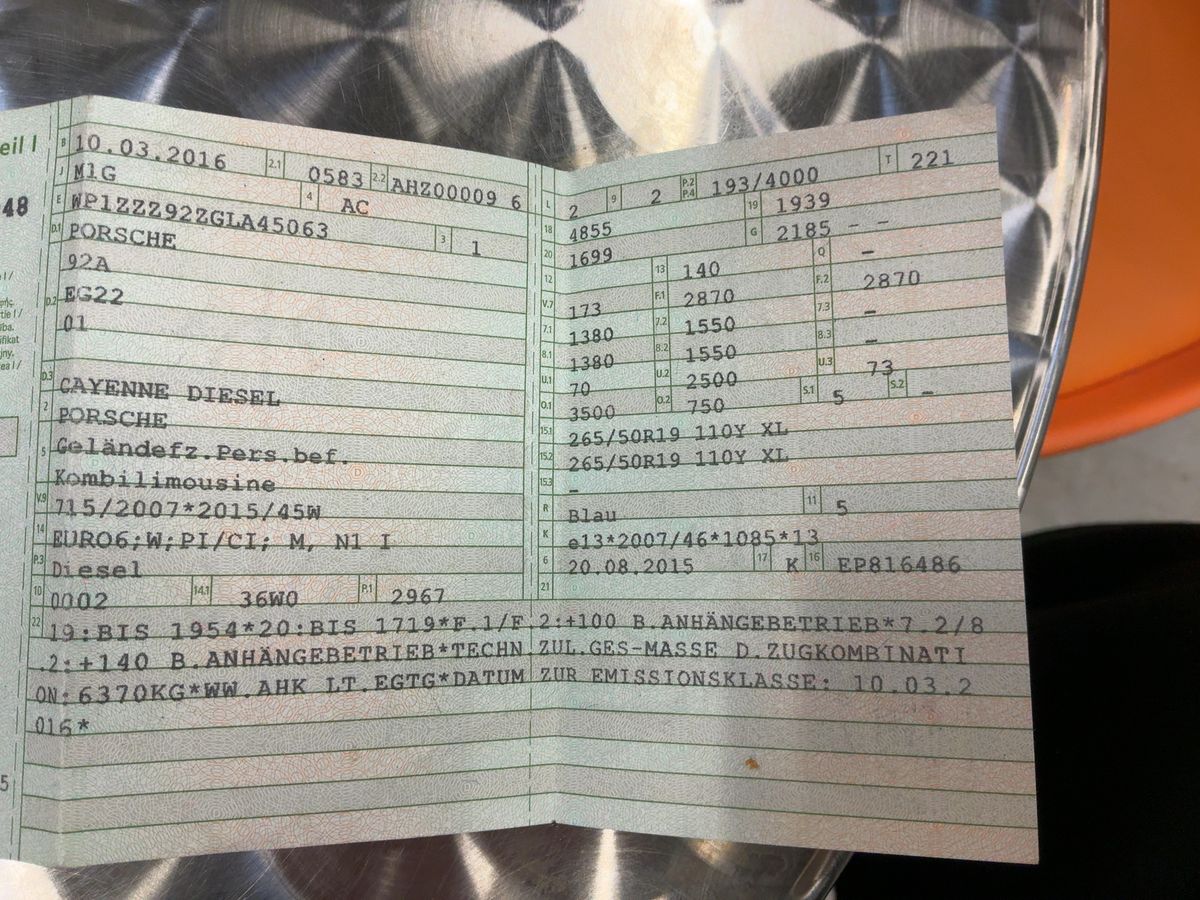 eil I
48
B 10.03.2016 2.1 0583 2.2 AHZ00009 6
J M1G 4 AC
E WP1ZZZ92ZGLA45063 3 1
D.1 PORSCHE
92A
D.2 EG22
01
D.3 CAYENNE DIESEL
2 PORSCHE
5 Geländefz.Pers.bef.
Kombilimousine
V.9 715/2007*2015/45W
14 EURO6;W;PI/CI; M, N1 I
P.3 Diesel
10 0002 14.1 36W0 P.1 2967
L 2 9 2 P.2 P.4 193/4000 T 221
18 4855 19 1939
20 1699 G 2185 – –
12 13 140 Q –
V.7 173 F.1 2870 F.2 2870
7.1 1380 7.2 1550 7.3 –
8.1 1380 8.2 1550 8.3 –
U.1 70 U.2 2500 U.3 73
O.1 3500 O.2 750 S.1 5 S.2 –
15.1 265/50R19 110Y XL
15.2 265/50R19 110Y XL
15.3 –
R Blau 11 5
K e13*2007/46*1085*13
6 20.08.2015 17 K 16 EP816486
21
22 19:BIS 1954*20:BIS 1719*F.1/F.2:+100 B.ANHÄNGEBETRIEB*7.2/8
.2:+140 B.ANHÄNGEBETRIEB*TECHN.ZUL.GES-MASSE D.ZUGKOMBINATI
ON:6370KG*WW.AHK LT.EGTG*DATUM ZUR EMISSIONSKLASSE: 10.03.2
016*
5